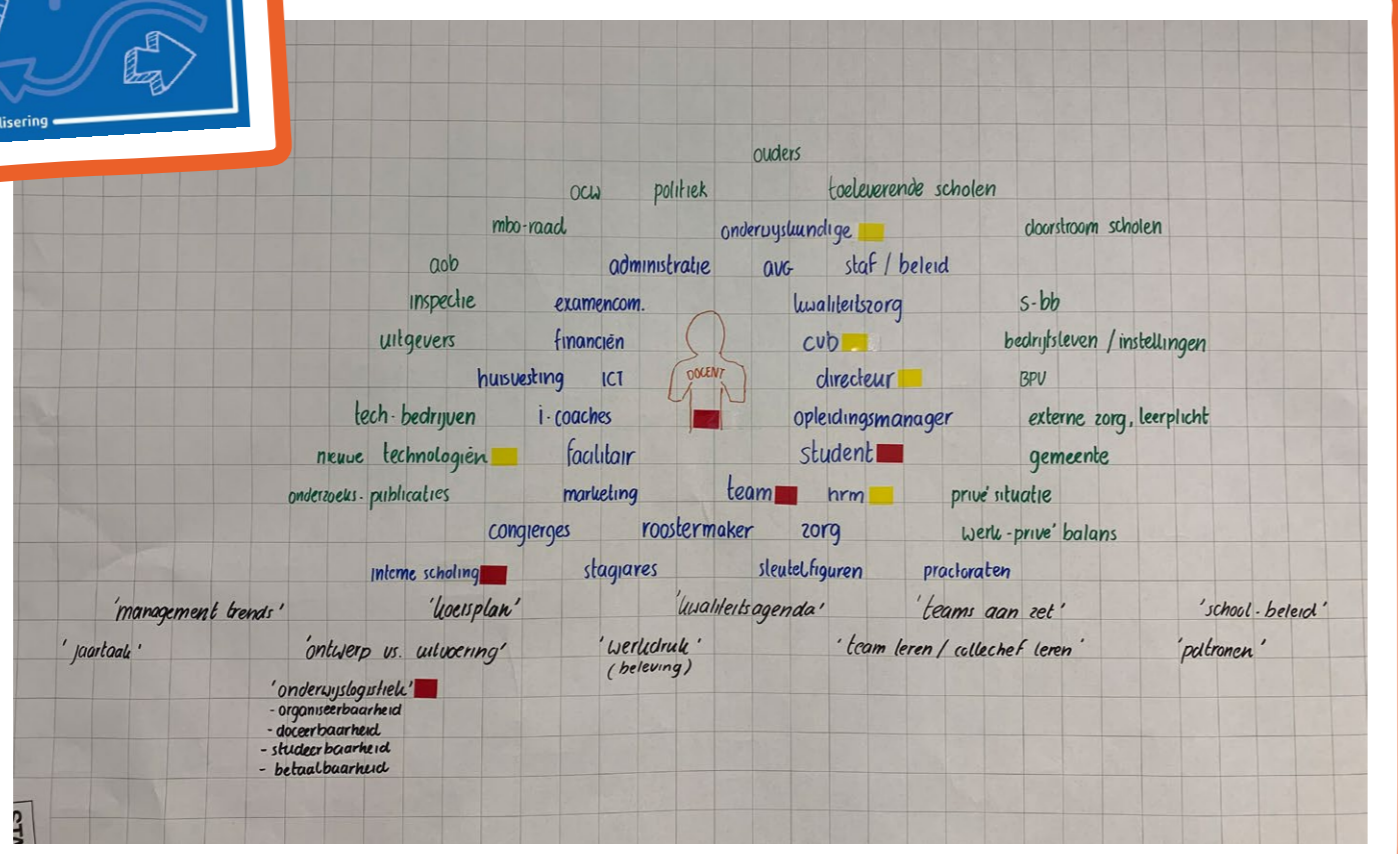 lisering
ouders
ocw politiek toeleverende scholen
mbo-raad onderwijskundige doorstroom scholen
aob administratie avg staf / beleid
inspectie examencom. kwaliteitszorg s-bb
uitgevers financiën cvb bedrijfsleven / instellingen
huisvesting ICT DOCENT directeur BPV
tech-bedrijven i-coaches opleidingsmanager externe zorg, leerplicht
nieuwe technologiën facilitair student gemeente
onderzoeks-publicaties marketing team hrm privé situatie
congierges roostermaker zorg werk-privé balans
interne scholing stagiares sleutelfiguren practoraten
'management trends' 'koersplan' 'kwaliteitsagenda' 'teams aan zet' 'school-beleid'
'jaartaak' 'ontwerp vs. uitvoering' 'werkdruk' 'team leren / collectief leren' 'patronen'
(beleving)
'onderwijslogistiek'
- organiseerbaarheid
- doceerbaarheid
- studeerbaarheid
- betaalbaarheid
STA